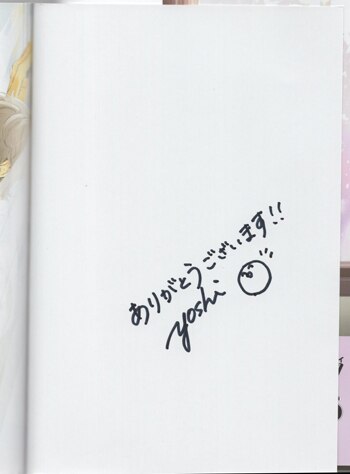 ありがとうございます!!
yoshi